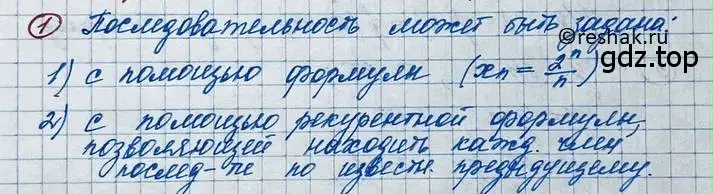 ① Последовательность может быть задана:
©reshak.ru
гдз.top
1) с помощью формулы (xₙ = 2ⁿ/n)
2) с помощью рекурентной формулы,
позволяющей находить кажд. член
послед-ти по извести. предыдущему.